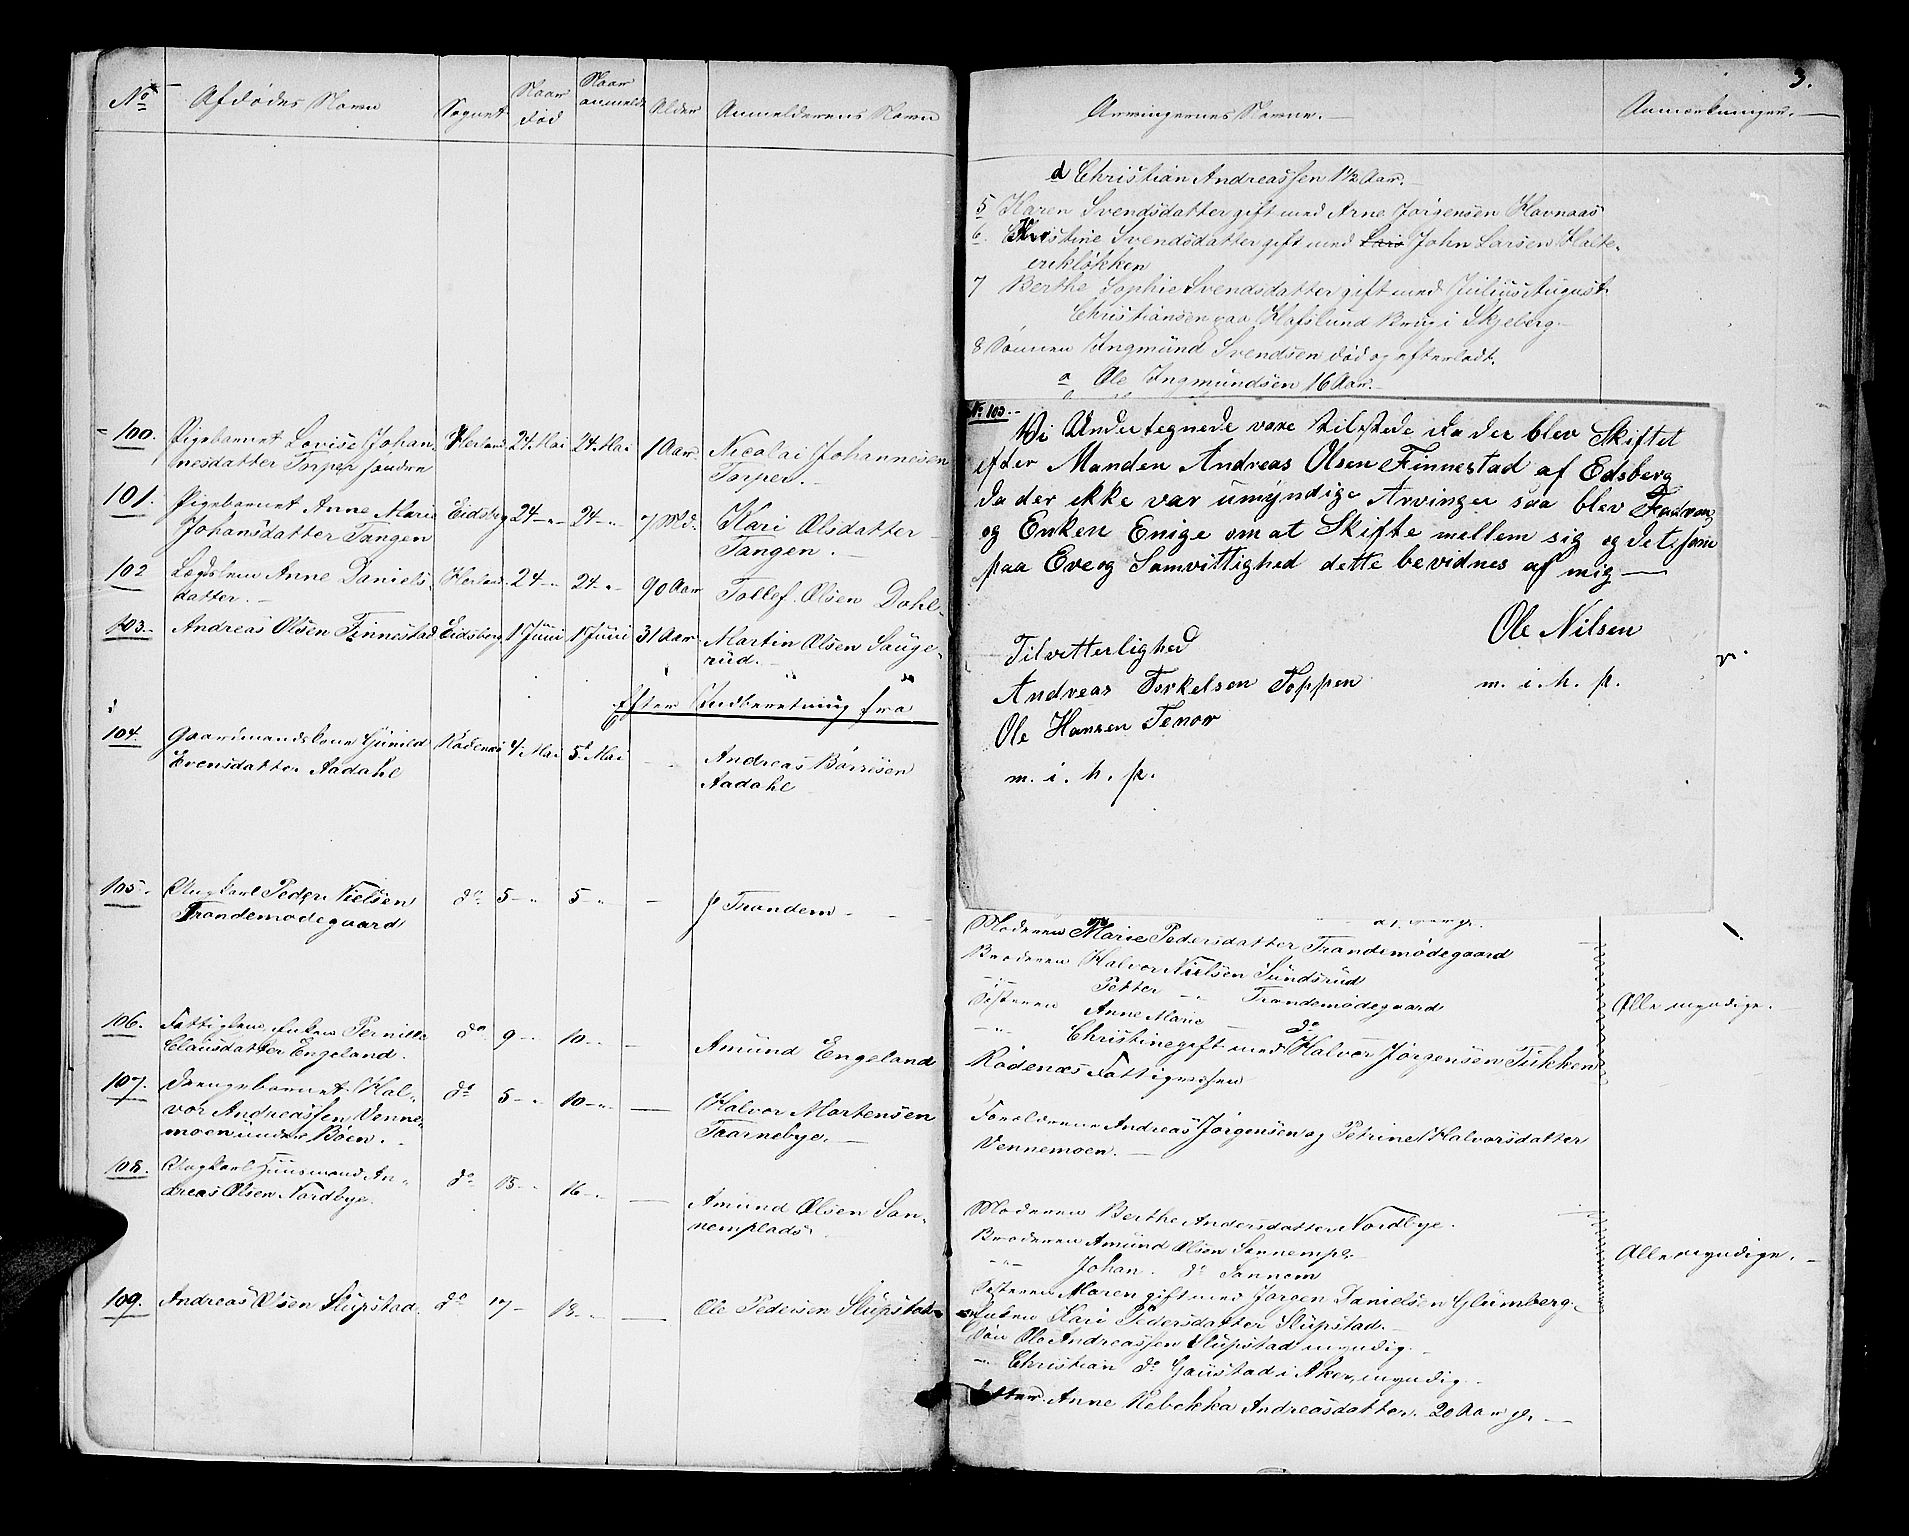 No Afdødes Navn Sognet Naar død Naar anmeldt Alder Anmelderens Navn
100. Pigebarnet Lovise Johan- Herland 24. Mai 24. Mai 1 Aar Nicolai Johannesen
nesdatter Torper søndre Torper.
101. Pigebarnet Anne Marie Eidsberg 24 - " 24 - " 7 Md. Kari Olsdatter
Johansdatter Tangen Tangen.
102 Lægdslem Anne Daniels- Herland 24 - " 24 - " 90 Aar Tollef Olsen Dahl-
datter.
103. Andreas Olsen Finnestad Eidsberg 1 Juni 1 Juni 31 Aar Martin Olsen Sauge-
rud.
Efter Indberetning fra
104. Gaardmandskone Gunild Rødenæs 4. Mai 5. Mai Andreas Børresen
Evensdatter Aadahl Aadahl
105. Ungkarl Peder Nielsen do 5 - " 5 - " - P Trandem
Trandemødegaard
106. Fattiglem, Enken Pernille do 9 - " 10 - " - Amund Engeland
Clausdatter Engeland.
107. Drengebarnet Hal- do 5 - " 10 - " - Halvor Mortensen
vor Andreassen Venne- Taarnebye.
moen under Böen.
108. Ungkarl Huusmand An- do 15 - " 16 - " - Amund Olsen San-
dreas Olsen Nordbye. nemplads
109. Andreas Olsen Slupstad. do 17 - 18 - " - Ole Pedersen Slupstad
3.
Arvingernes Navne. Anmærkninger.
d Christian Andreassen 1½ Aar.
5 Karen Svendsdatter gift med Arne Jørgensen Havnaas
6. Kristine Svendsdatter gift med Lars John Larsen Holte-
erikløkken
7 Berthe Sophie Svendsdatter gift med Julius August
Christiansen paa Hafslund Brug i Skjeberg.
8 Sønnen Ingmund Svendsen død og efterladt.
a Ole Ingmundsen 16 Aar.
No. 103.
Vi Undertegnede vare tilstede da der blev Skiftet
efter Manden Andreas Olsen Finnestad af Edsberg
da der ikke var umyndige Arvinger saa blev Fadren
og Enken Enige om at Skifte mellem sig og det som
paa Ere og Samvittighed dette bevidnes af mig
Ole Nilsen
m. i. h. p.
Tilvitterlighed
Andreas Torkelsen Toppen
Ole Hansen Tenor
m. i. h. p.
Moderen Marie Pedersdatter Trandemødegaard
Broderen Halvor Nielsen Sundsrud
- " - Petter - " - Trandemødegaard Alle myndige.
Søsteren Anne Marie - do
- " - Christine gift med Halvor Jørgensen Tukken
Rødenæs Fattigvæsen
Forældrene Andreas Jørgensen og Petrine Halvorsdatter
Vennemoen.
Moderen Berthe Andersdatter Nordbye.
Broderen Amund Olsen Sannempl.
- " - Johan. do Sannem Alle myndige.
Søsteren Maren gift med Jørgen Danielsen Glumberg.
Enken Kari Pedersdatter Slupstad.
Søn Ole Andreassen Slupstad myndig.
- " - Christian do Gaustad i Aker, myndig.
Datter Anne Rebekka Andreasdatter. 20 Aar gl.